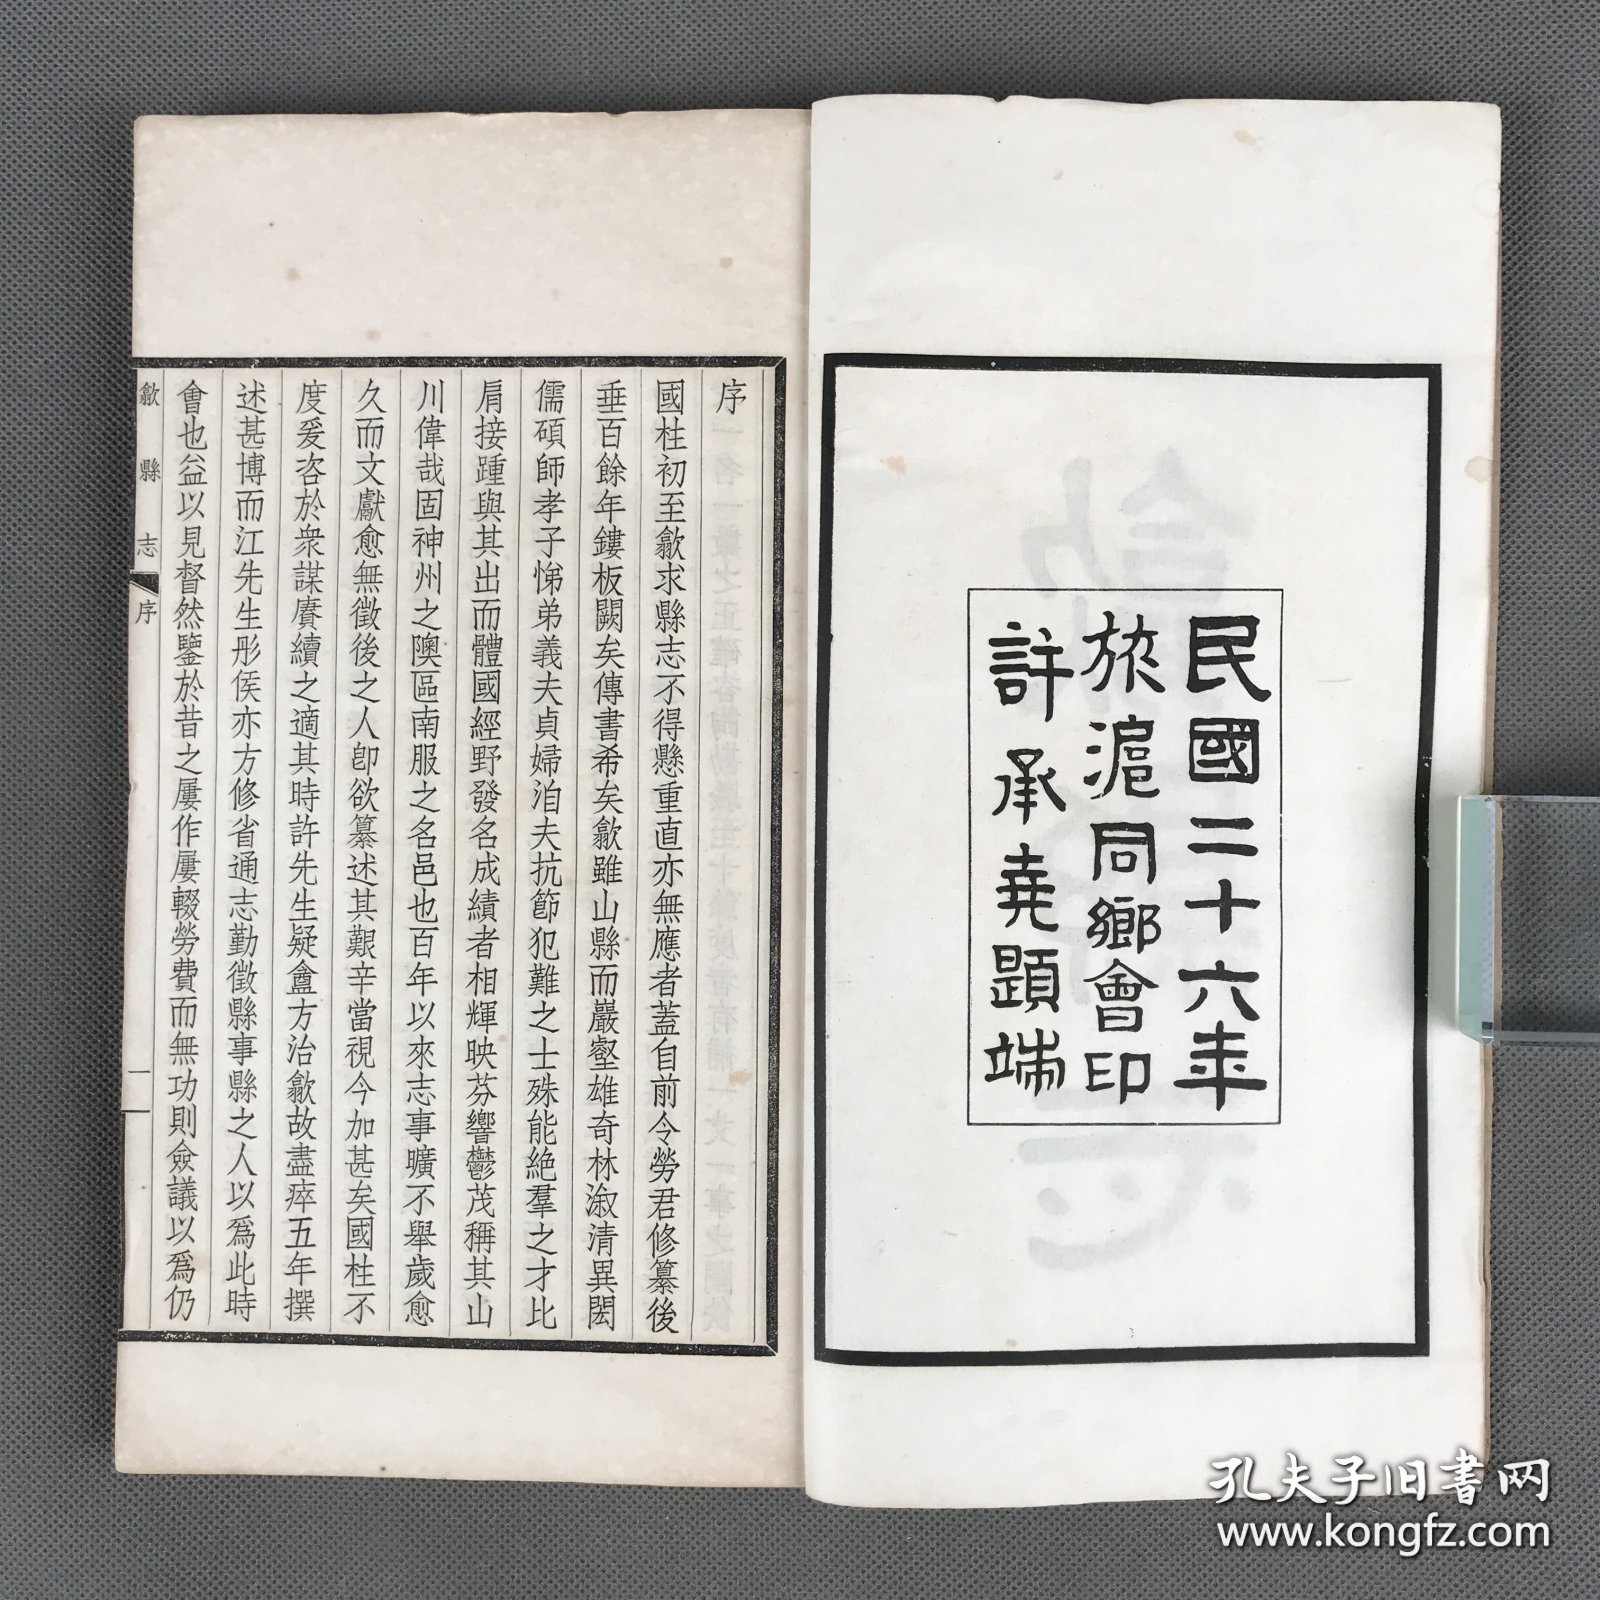 民國二十六年
旅滬同鄉會印
許承堯題端
序
國柱初至歙求縣志不得懸重直亦無應者蓋自前令勞君修纂後
垂百餘年鏤板闕矣傳書希矣歙雖山縣而巖壑雄奇林溆清異閎
儒碩師孝子悌弟義夫貞婦洎夫抗節犯難之士殊能絶羣之才比
肩接踵與其出而體國經野發名成績者相輝映芬響鬱茂稱其山
川偉哉固神州之隩區南服之名邑也百年以來志事曠不舉歲愈
久而文獻愈無徵後之人卽欲纂述其艱辛當視今加甚矣國柱不
度爰咨於衆謀賡續之適其時許先生疑盦方治歙故盡瘁五年撰
述甚博而江先生彤侯亦方修省通志勤徵縣事縣之人以爲此時
會也益以見督然鑒於昔之屢作屢輟勞費而無功則僉議以爲仍
歙縣志
序
一
孔夫子旧书网
www.kongfz.com